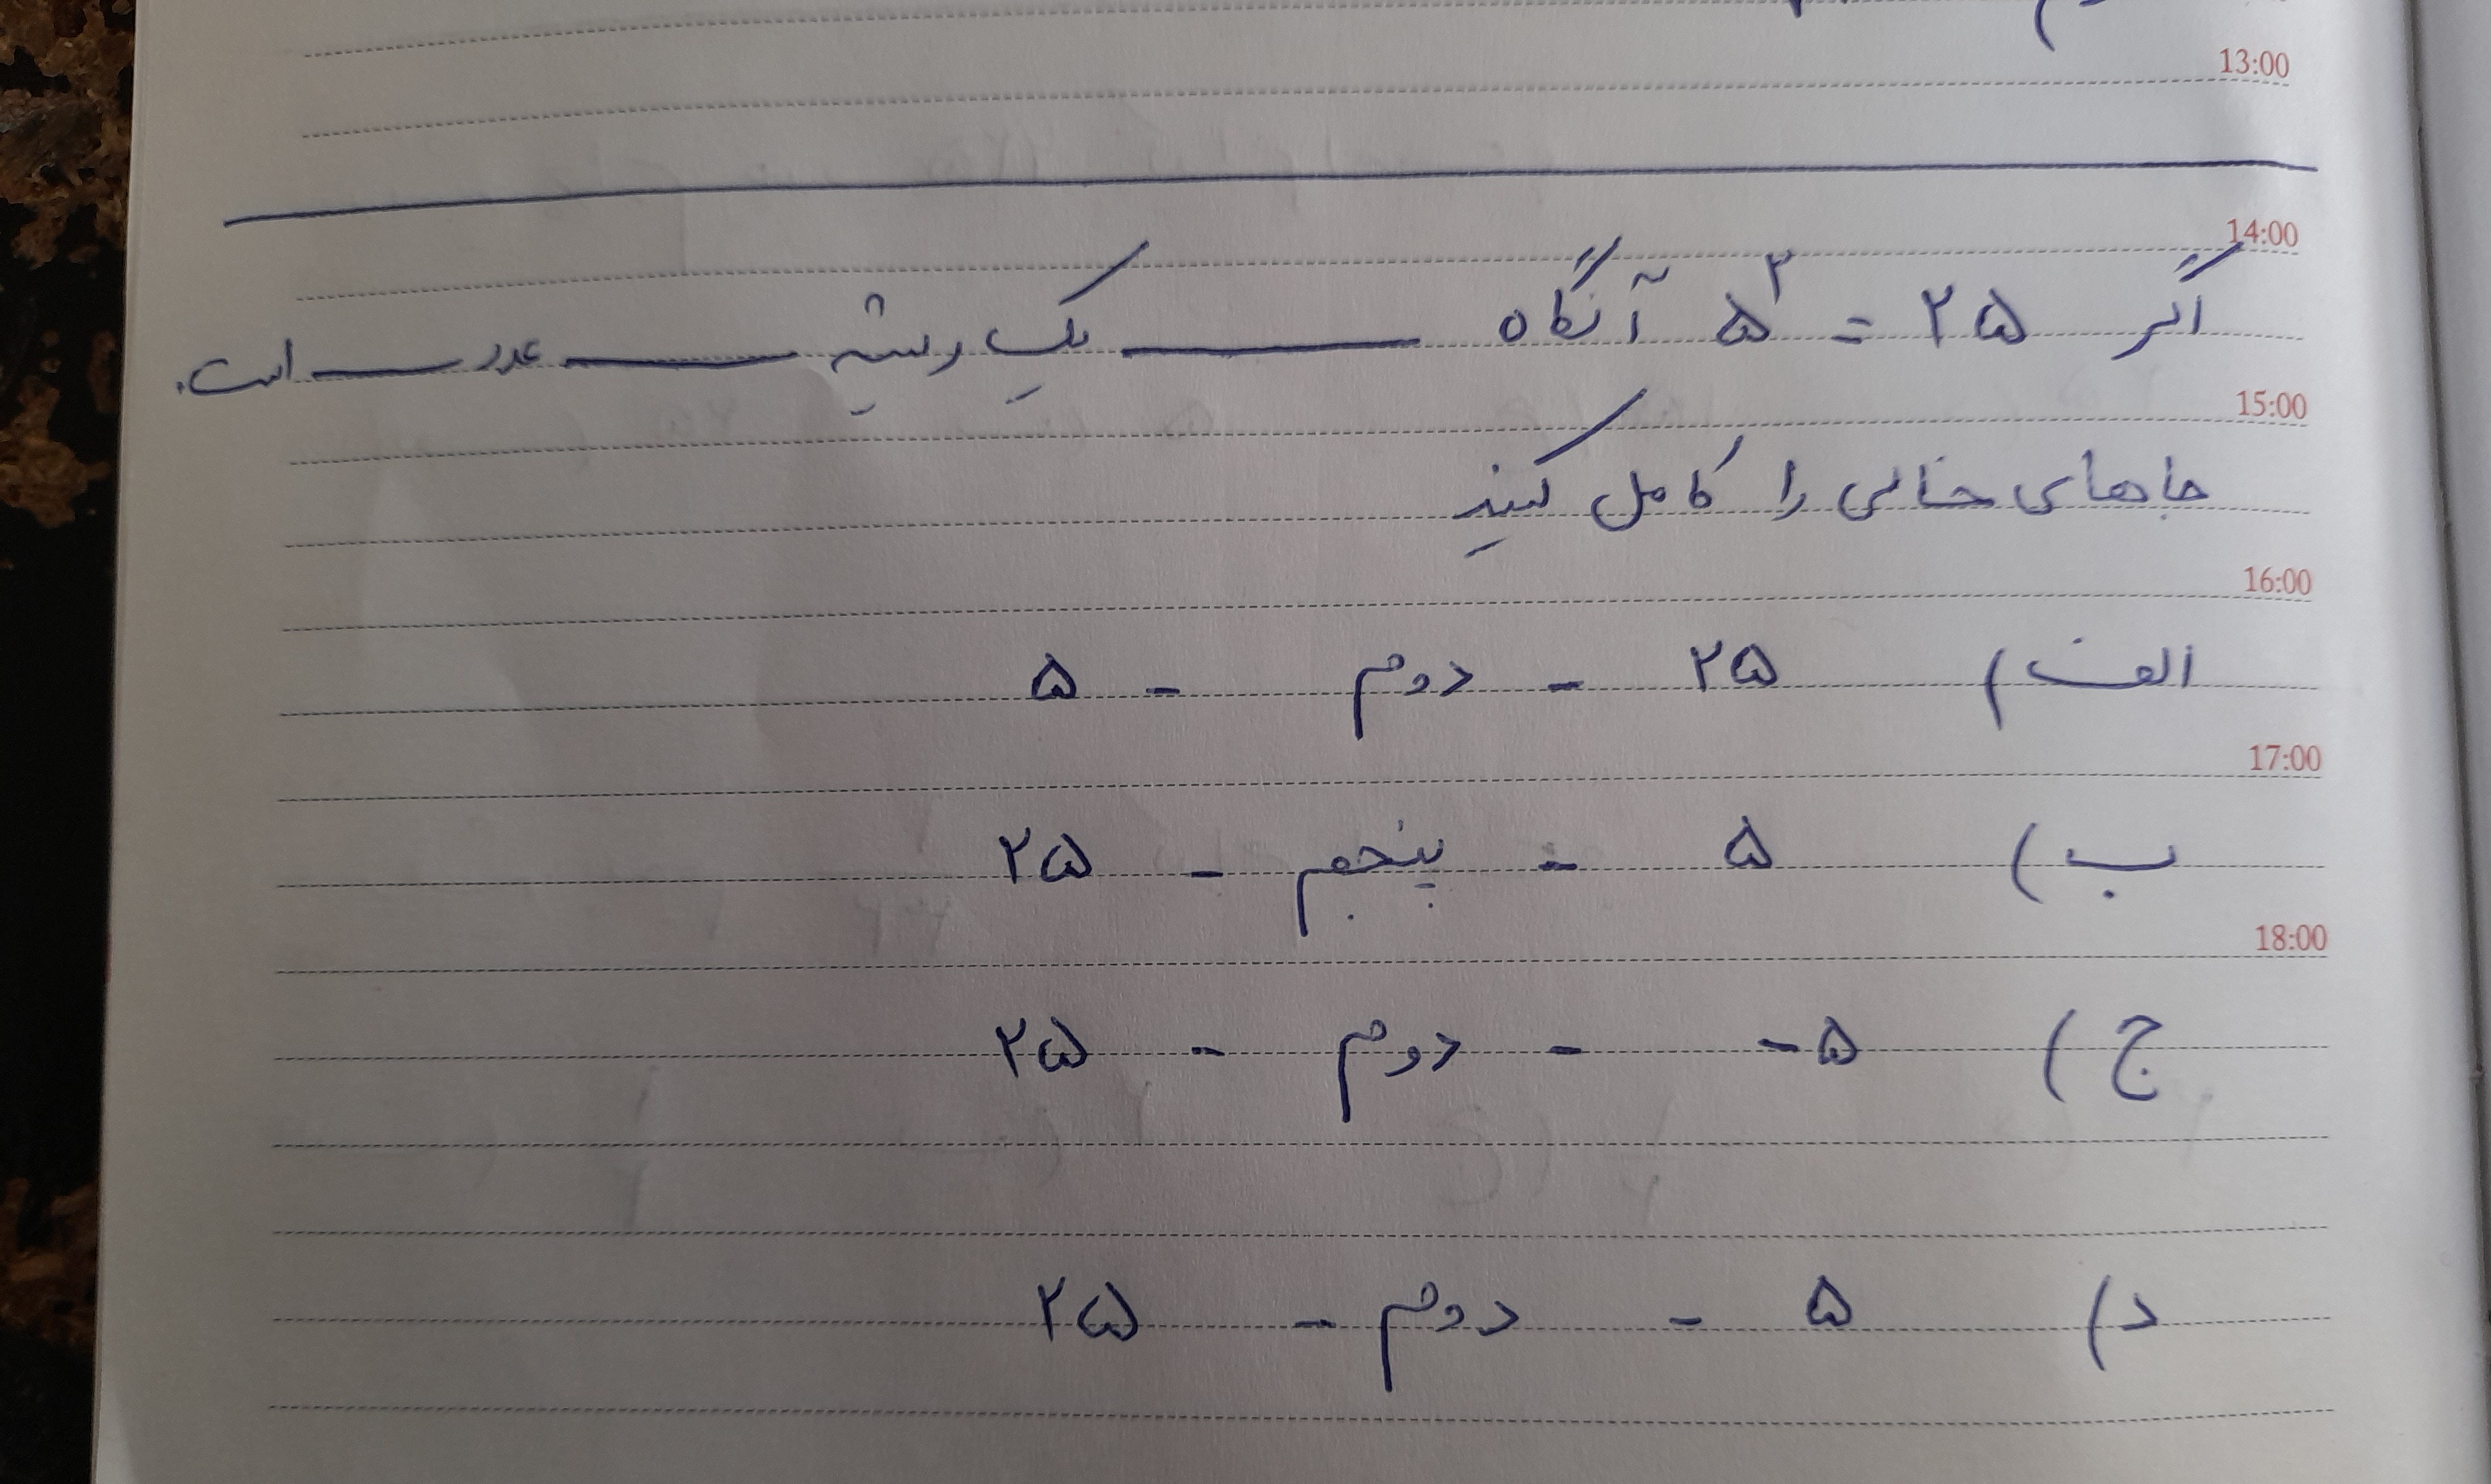 13:00
14:00
اگر ۲۵ = ۵^۲ آنگاه ____ یک ریشه ____ عدد ____ است.
15:00
جاهای خالی را کامل کنید
16:00
الف) ۲۵ - دوم - ۵
17:00
ب) ۵ - پنجم - ۲۵
18:00
ج) -۵ - دوم - ۲۵
د) ۵ - دوم - ۲۵